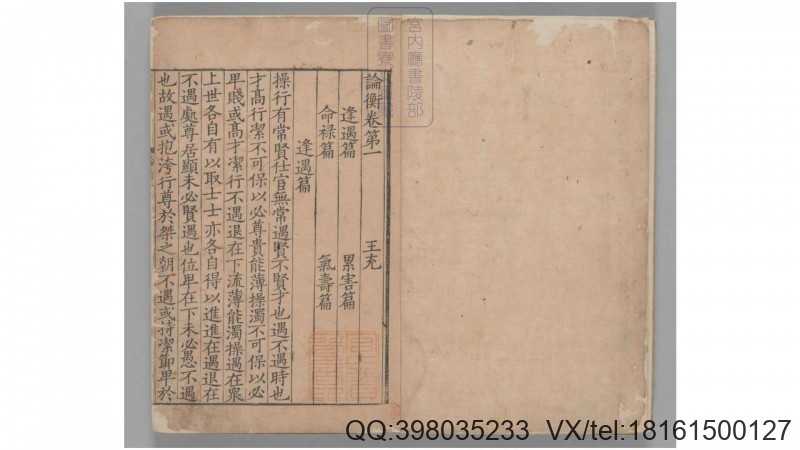 論衡卷第一 王充
逢遇篇 累害篇
命禄篇 氣壽篇
逢遇篇
操行有常賢仕宦無常遇賢不賢才也遇不遇時也
才髙行潔不可保以必尊貴能薄操濁不可保以必
卑賤或髙才潔行不遇退在下流薄能濁操遇在衆
上世各自有以取士士亦各自得以進進在遇退在
不遇處尊居顯未必賢遇也位卑在下未必愚不遇
也故遇或抱洿行尊於桀之朝不遇或持潔節卑於
宮内廳書陵部
圖書寮
QQ:398035233 VX/tel:18161500127